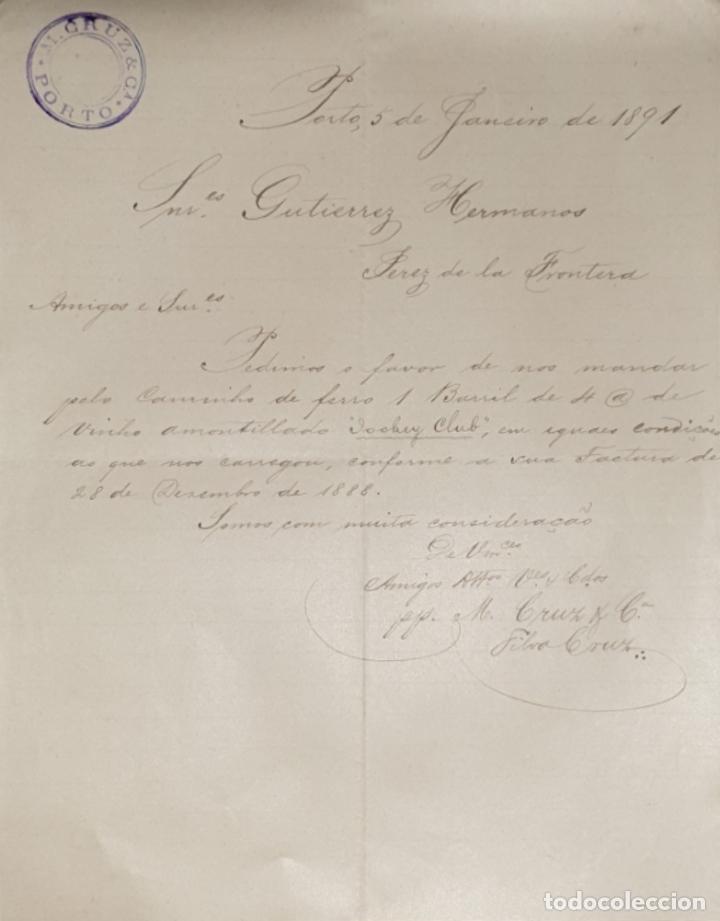 M. CRUZ & CA
PORTO
Porto, 5 de Janeiro de 1891
Snr.es Gutierrez Hermanos
Jerez de la Frontera
Amigos e Snr.es
Pedimos o favor de nos mandar
pelo Caminho de ferro 1 Barril de 4 @ de
Vinho amontillado "Jockey Club", em eguaes condições
ao que nos carregou, conforme a sua Factura de
28 de Dezembro de 1888.
Somos com muita consideração
De Vm.ces
Amigos Att.os V.es y C.dos
pp. M. Cruz & C.a
Silva Cruz
todocoleccion
todocoleccion.net